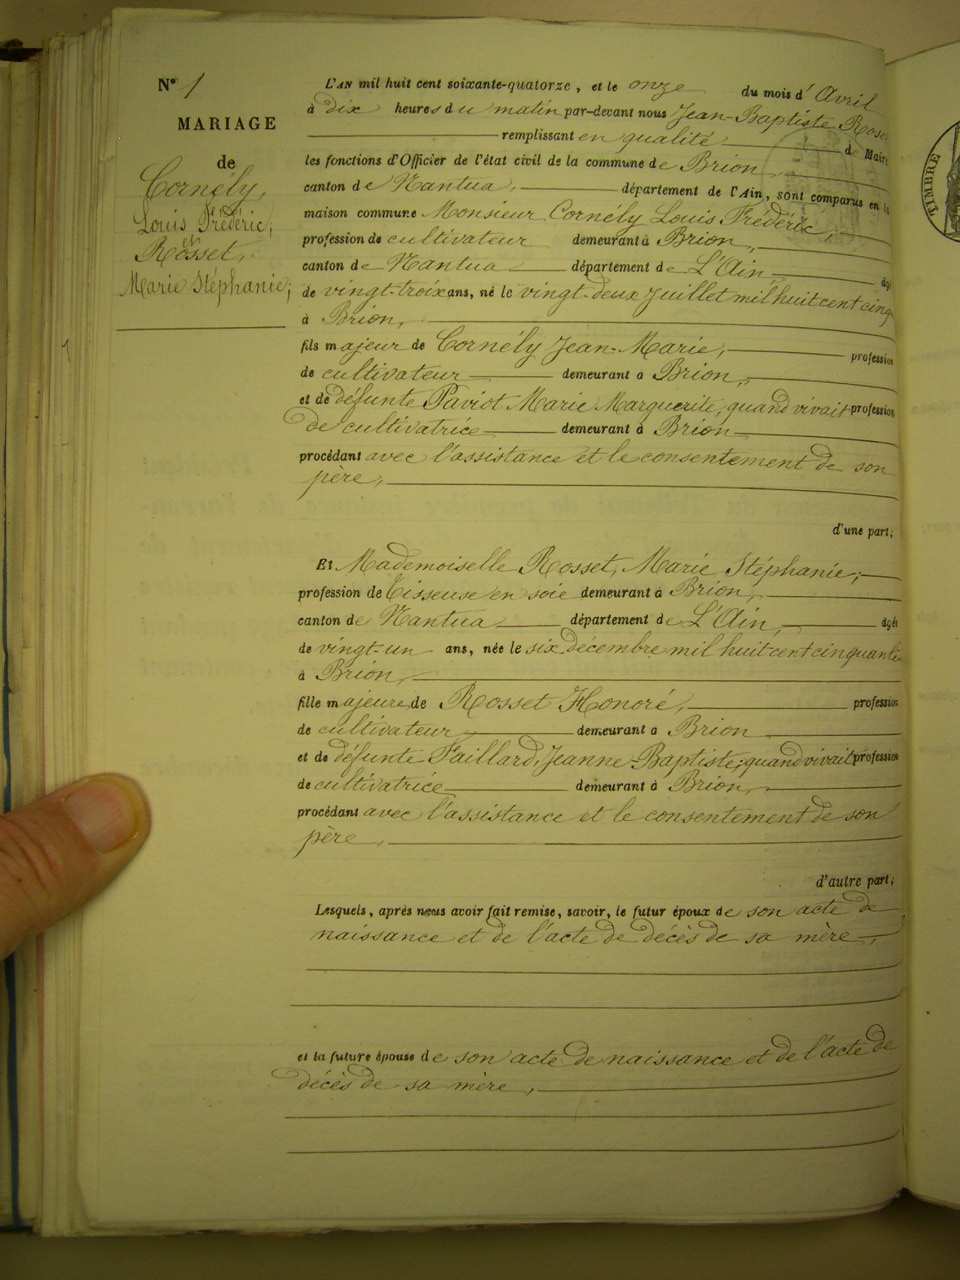 N° 1
MARIAGE
de
Cornély,
Louis Frédéric,
et
Rosset,
Marie Stéphanie;
L'AN mil huit cent soixante-quatorze, et le onze du mois d'Avril
à dix heures du matin par-devant nous Jean-Baptiste Ross
remplissant en qualité de Maire
les fonctions d'Officier de l'état civil de la commune de Brion
canton de Nantua, département de l'Ain, sont comparus en la
maison commune Monsieur Cornély Louis Frédéric,
profession de cultivateur demeurant à Brion,
canton de Nantua département de L'Ain âgé
de vingt-trois ans, né le vingt-deux Juillet mil huit cent cinq
à Brion,
fils majeur de Cornély Jean-Marie, profession
de cultivateur demeurant à Brion,
et de défunte Paviot Marie Marguerite, quand vivait profession
de cultivatrice demeurant à Brion
procédant avec l'assistance et le consentement de son
père,
d'une part;
Et Mademoiselle Rosset, Marie Stéphanie;
profession de Tisseuse en soie demeurant à Brion,
canton de Nantua département de L'Ain, âgée
de vingt-un ans, née le six décembre mil huit cent cinquante
à Brion,
fille majeure de Rosset Honoré, profession
de cultivateur demeurant à Brion
et de défunte Faillard, Jeanne-Baptiste, quand vivait profession
de cultivatrice demeurant à Brion,
procédant avec l'assistance et le consentement de son
père,
d'autre part;
Lesquels, après nous avoir fait remise, savoir, le futur époux de son acte de
naissance et de l'acte de décès de sa mère,
et la future épouse de son acte de naissance et de l'acte de
décès de sa mère,
TIMBRE